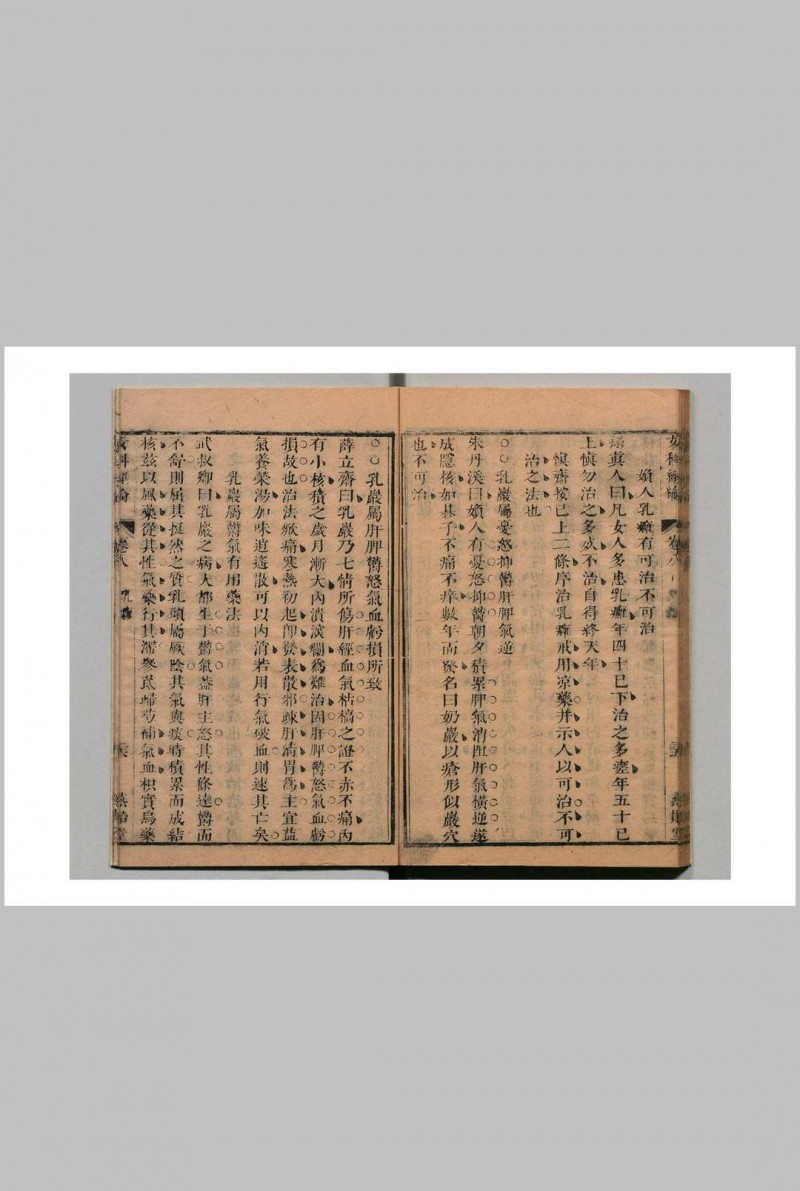 婦人乳癰有可治不可治
真人曰凡女人多患乳癰年四十已下治之多瘥年五十已
上慎勿治之多死不治自得終天年
慎齋按已上二條序治乳癰戒用涼藥并示人以可治不可
治之法也
○○乳巖屬憂怒抑鬱肝脾氣逆
朱丹溪曰婦人有憂怒抑鬱朝夕積累脾氣消阻肝氣橫逆遂
成隱核如棊子不痛不痒數年而發名曰奶巖以瘡形似巖穴
也不可治
○○乳巖屬肝脾鬱怒氣血虧損所致
薛立齋曰乳巖乃七情所傷肝經血氣枯槁之證不赤不痛內
有小核積之歲月漸大內潰深爛爲難治因肝脾鬱怒氣血虧
損故也治法焮痛寒熱初起卽發表散邪疎肝清胃爲主宜益
氣養榮湯加味逍遙散可以內消若用行氣破血則速其亡矣
乳巖鬱氣有用藥法
武叔卿曰乳巖之病大都生于鬱氣蓋肝主怒其性條達鬱而
不舒則屈其挺然之質乳頭屬厥陰其氣與痰時積累而成結
核茲以風藥從其性氣藥行其滯參芪歸芍補氣血枳實烏藥
卷八
乳巖